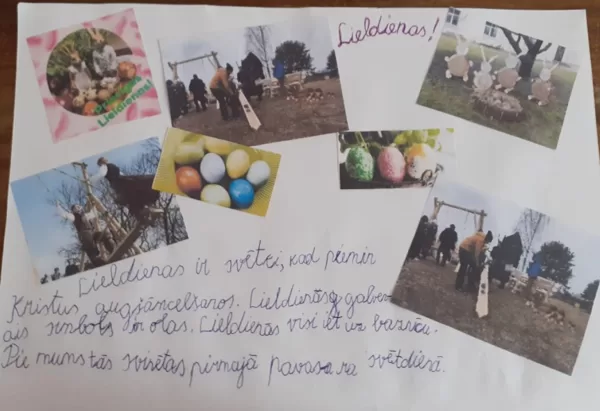 Lieldienas!
Lieldienas!
Lieldienas ir svētki, kad piemin
Kristus augjāncelšaros. Lieldienās galven
ais simbols ir olas. Lieldienās visi iet uz baznīcu.
Pie mums tās svinētas pirmajā pavasara svētdienā.